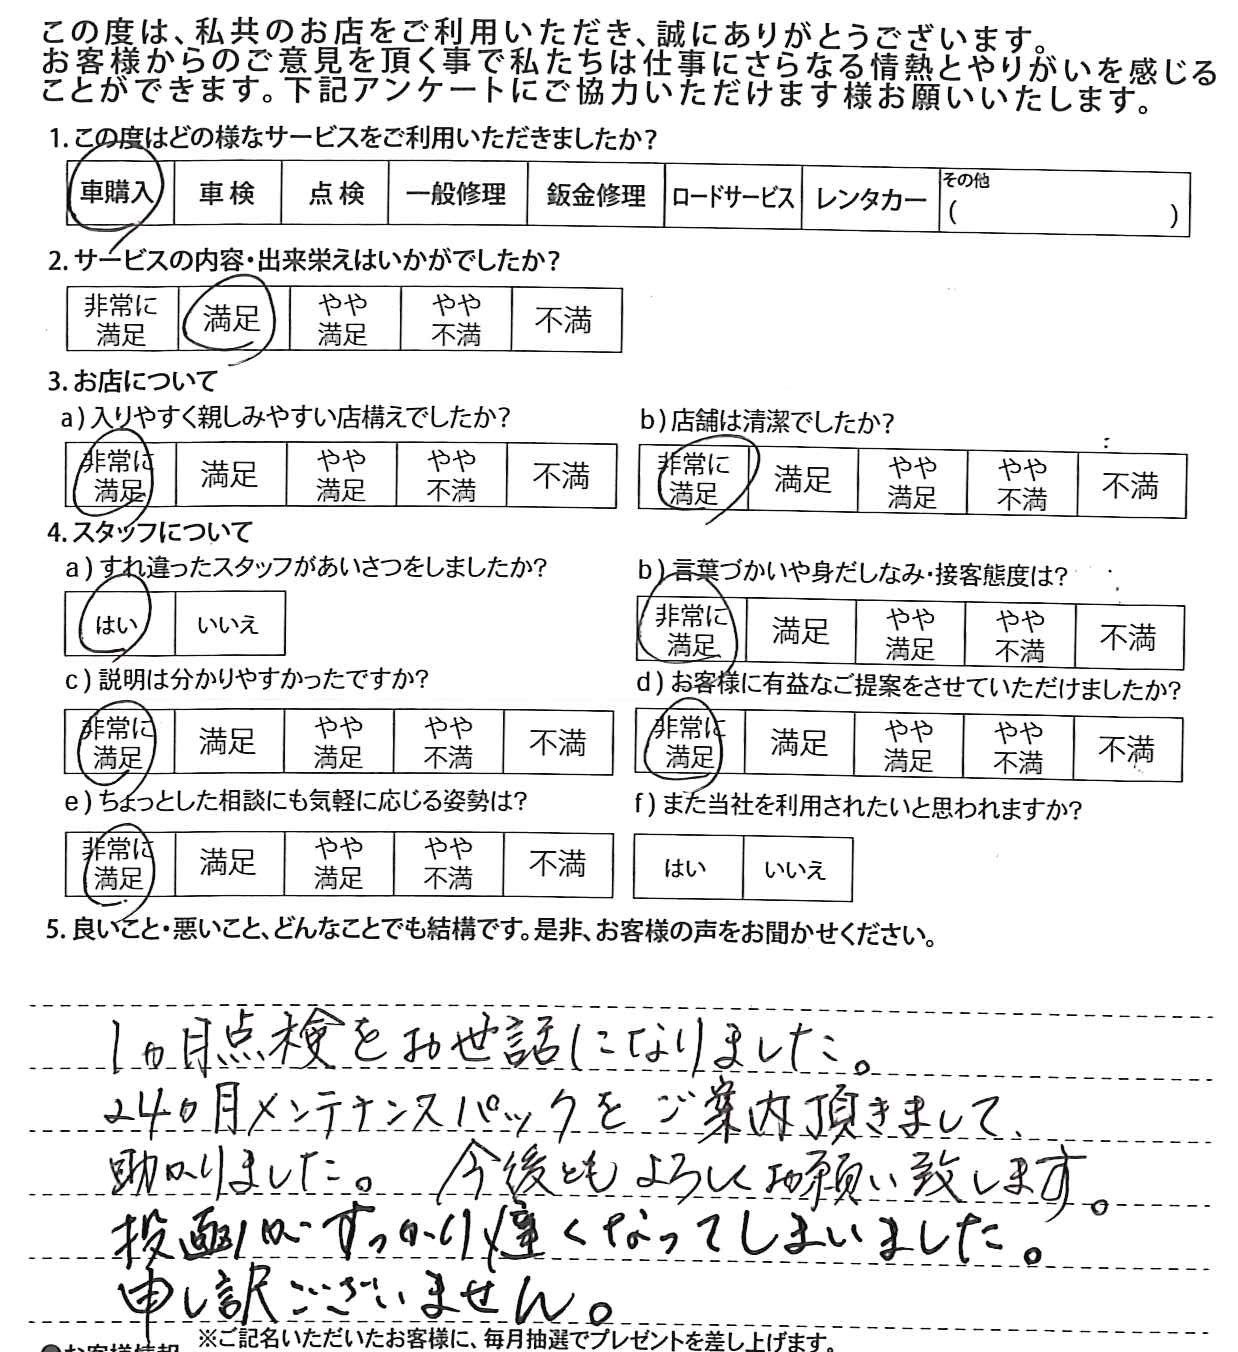 この度は、私共のお店をご利用いただき、誠にありがとうございます。
お客様からのご意見を頂く事で私たちは仕事にさらなる情熱とやりがいを感じる
ことができます。下記アンケートにご協力いただけます様お願いいたします。
1.この度はどの様なサービスをご利用いただきましたか?
車購入 車検 点検 一般修理 鈑金修理 ロードサービス レンタカー その他
( )
2.サービスの内容・出来栄えはいかがでしたか?
非常に満足 満足 やや満足 やや不満 不満
3.お店について
a)入りやすく親しみやすい店構えでしたか?
非常に満足 満足 やや満足 やや不満 不満
b)店舗は清潔でしたか?
非常に満足 満足 やや満足 やや不満 不満
4.スタッフについて
a)すれ違ったスタッフがあいさつをしましたか?
はい いいえ
b)言葉づかいや身だしなみ・接客態度は?
非常に満足 満足 やや満足 やや不満 不満
c)説明は分かりやすかったですか?
非常に満足 満足 やや満足 やや不満 不満
d)お客様に有益なご提案をさせていただけましたか?
非常に満足 満足 やや満足 やや不満 不満
e)ちょっとした相談にも気軽に応じる姿勢は?
非常に満足 満足 やや満足 やや不満 不満
f)また当社を利用されたいと思われますか?
はい いいえ
5.良いこと・悪いこと、どんなことでも結構です。是非、お客様の声をお聞かせください。
1ヵ月点検をお世話になりました。
24ヵ月メンテナンスパックをご案内頂きまして、
助かりました。 今後ともよろしくお願い致します。
投函がすっかり遅くなってしまいました。
申し訳ございません。
※ご記名いただいたお客様に、毎月抽選でプレゼントを差し上げます。
●お客様情報